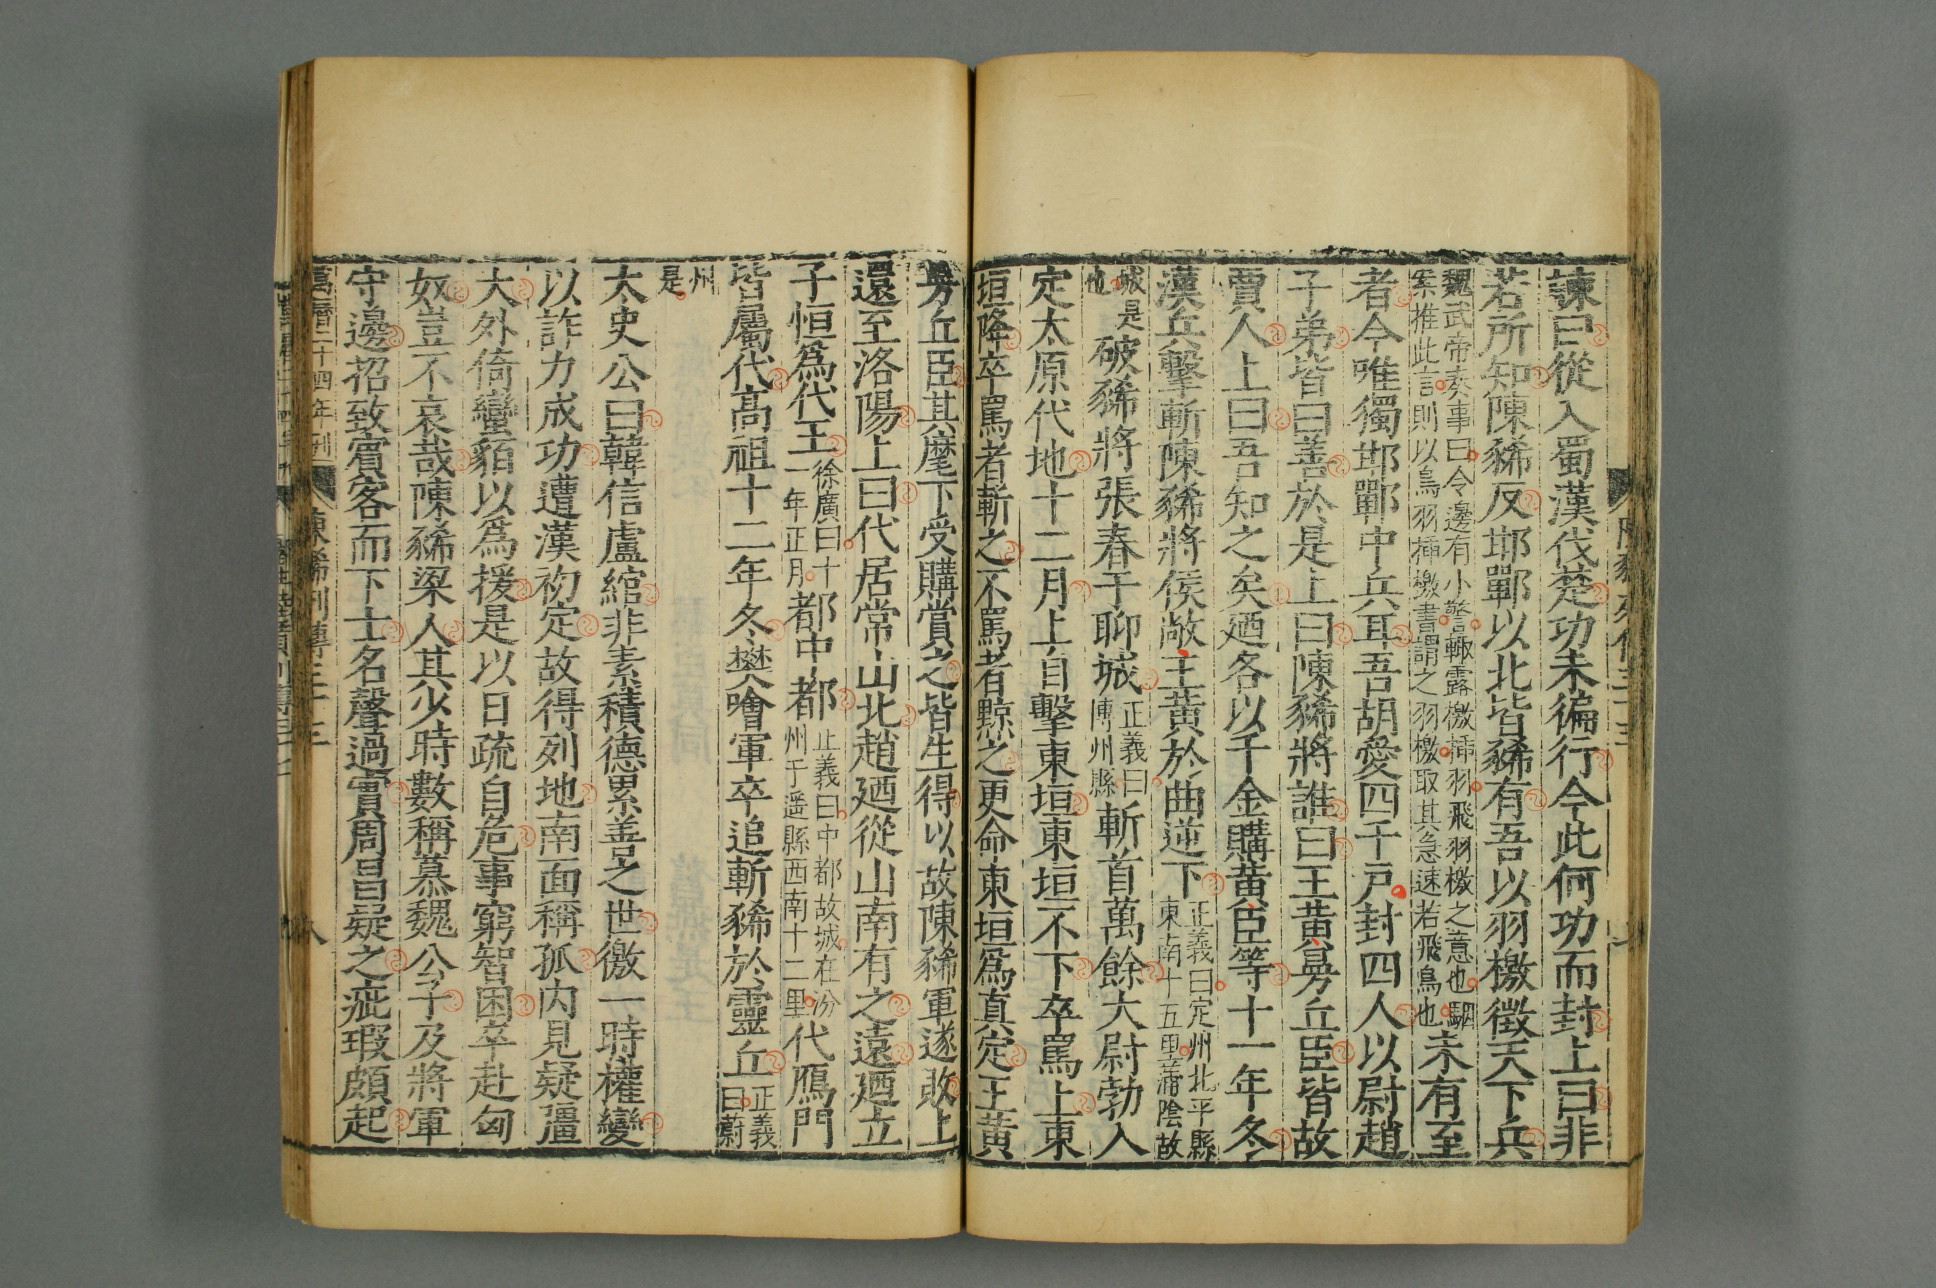 諫曰從入蜀漢伐楚功未徧行今此何功而封上曰非
若所知陳豨反邯鄲以北皆豨有吾以羽檄徵天下兵
魏武帝奏事曰今邊有小警輙露檄揷羽飛羽檄之意也駰
案推此言則以鳥羽揷檄書謂之羽檄取其急速若飛鳥也
未有至
者今唯獨邯鄲中兵耳吾胡愛四千戸封四人以尉趙
子弟皆曰善於是上曰陳豨將誰曰王黄曼丘臣皆故
賈人上曰吾知之矣廼各以千金購黄臣等十一年冬
漢兵擊斬陳豨將侯敞王黄於曲逆下
正義曰定州北平縣
東南十五里蒲陰故
城是
也
破豨將張春于聊城
正義曰
博州縣
斬首萬餘大尉勃入
定太原代地十二月上自擊東垣東垣不下卒罵上東
垣降卒罵者斬之不罵者黥之更命東垣爲真定王黄
曼丘臣其麾下受購賞之皆生得以故陳豨軍遂敗上
還至洛陽上曰代居常山北趙廼從山南有之遠廼立
子恒爲代王
徐廣曰十
一年正月
都中都
正義曰中都故城在汾
州平遥縣西南十二里
代鴈門
皆屬代高祖十二年冬樊噲軍卒追斬豨於靈丘
正義
曰蔚
州
是
太史公曰韓信盧綰非素積德累善之世徼一時權變
以詐力成功遭漢初定故得列地南面稱孤内見疑彊
大外倚蠻貊以爲援是以日疏自危事窮智困卒赴匈
奴豈不哀哉陳豨梁人其少時數稱慕魏公子及將軍
守邊招致賓客而下士名聲過實周昌疑之疵瑕頗起
萬曆二十四年刊
陳豨列傳三十三
八